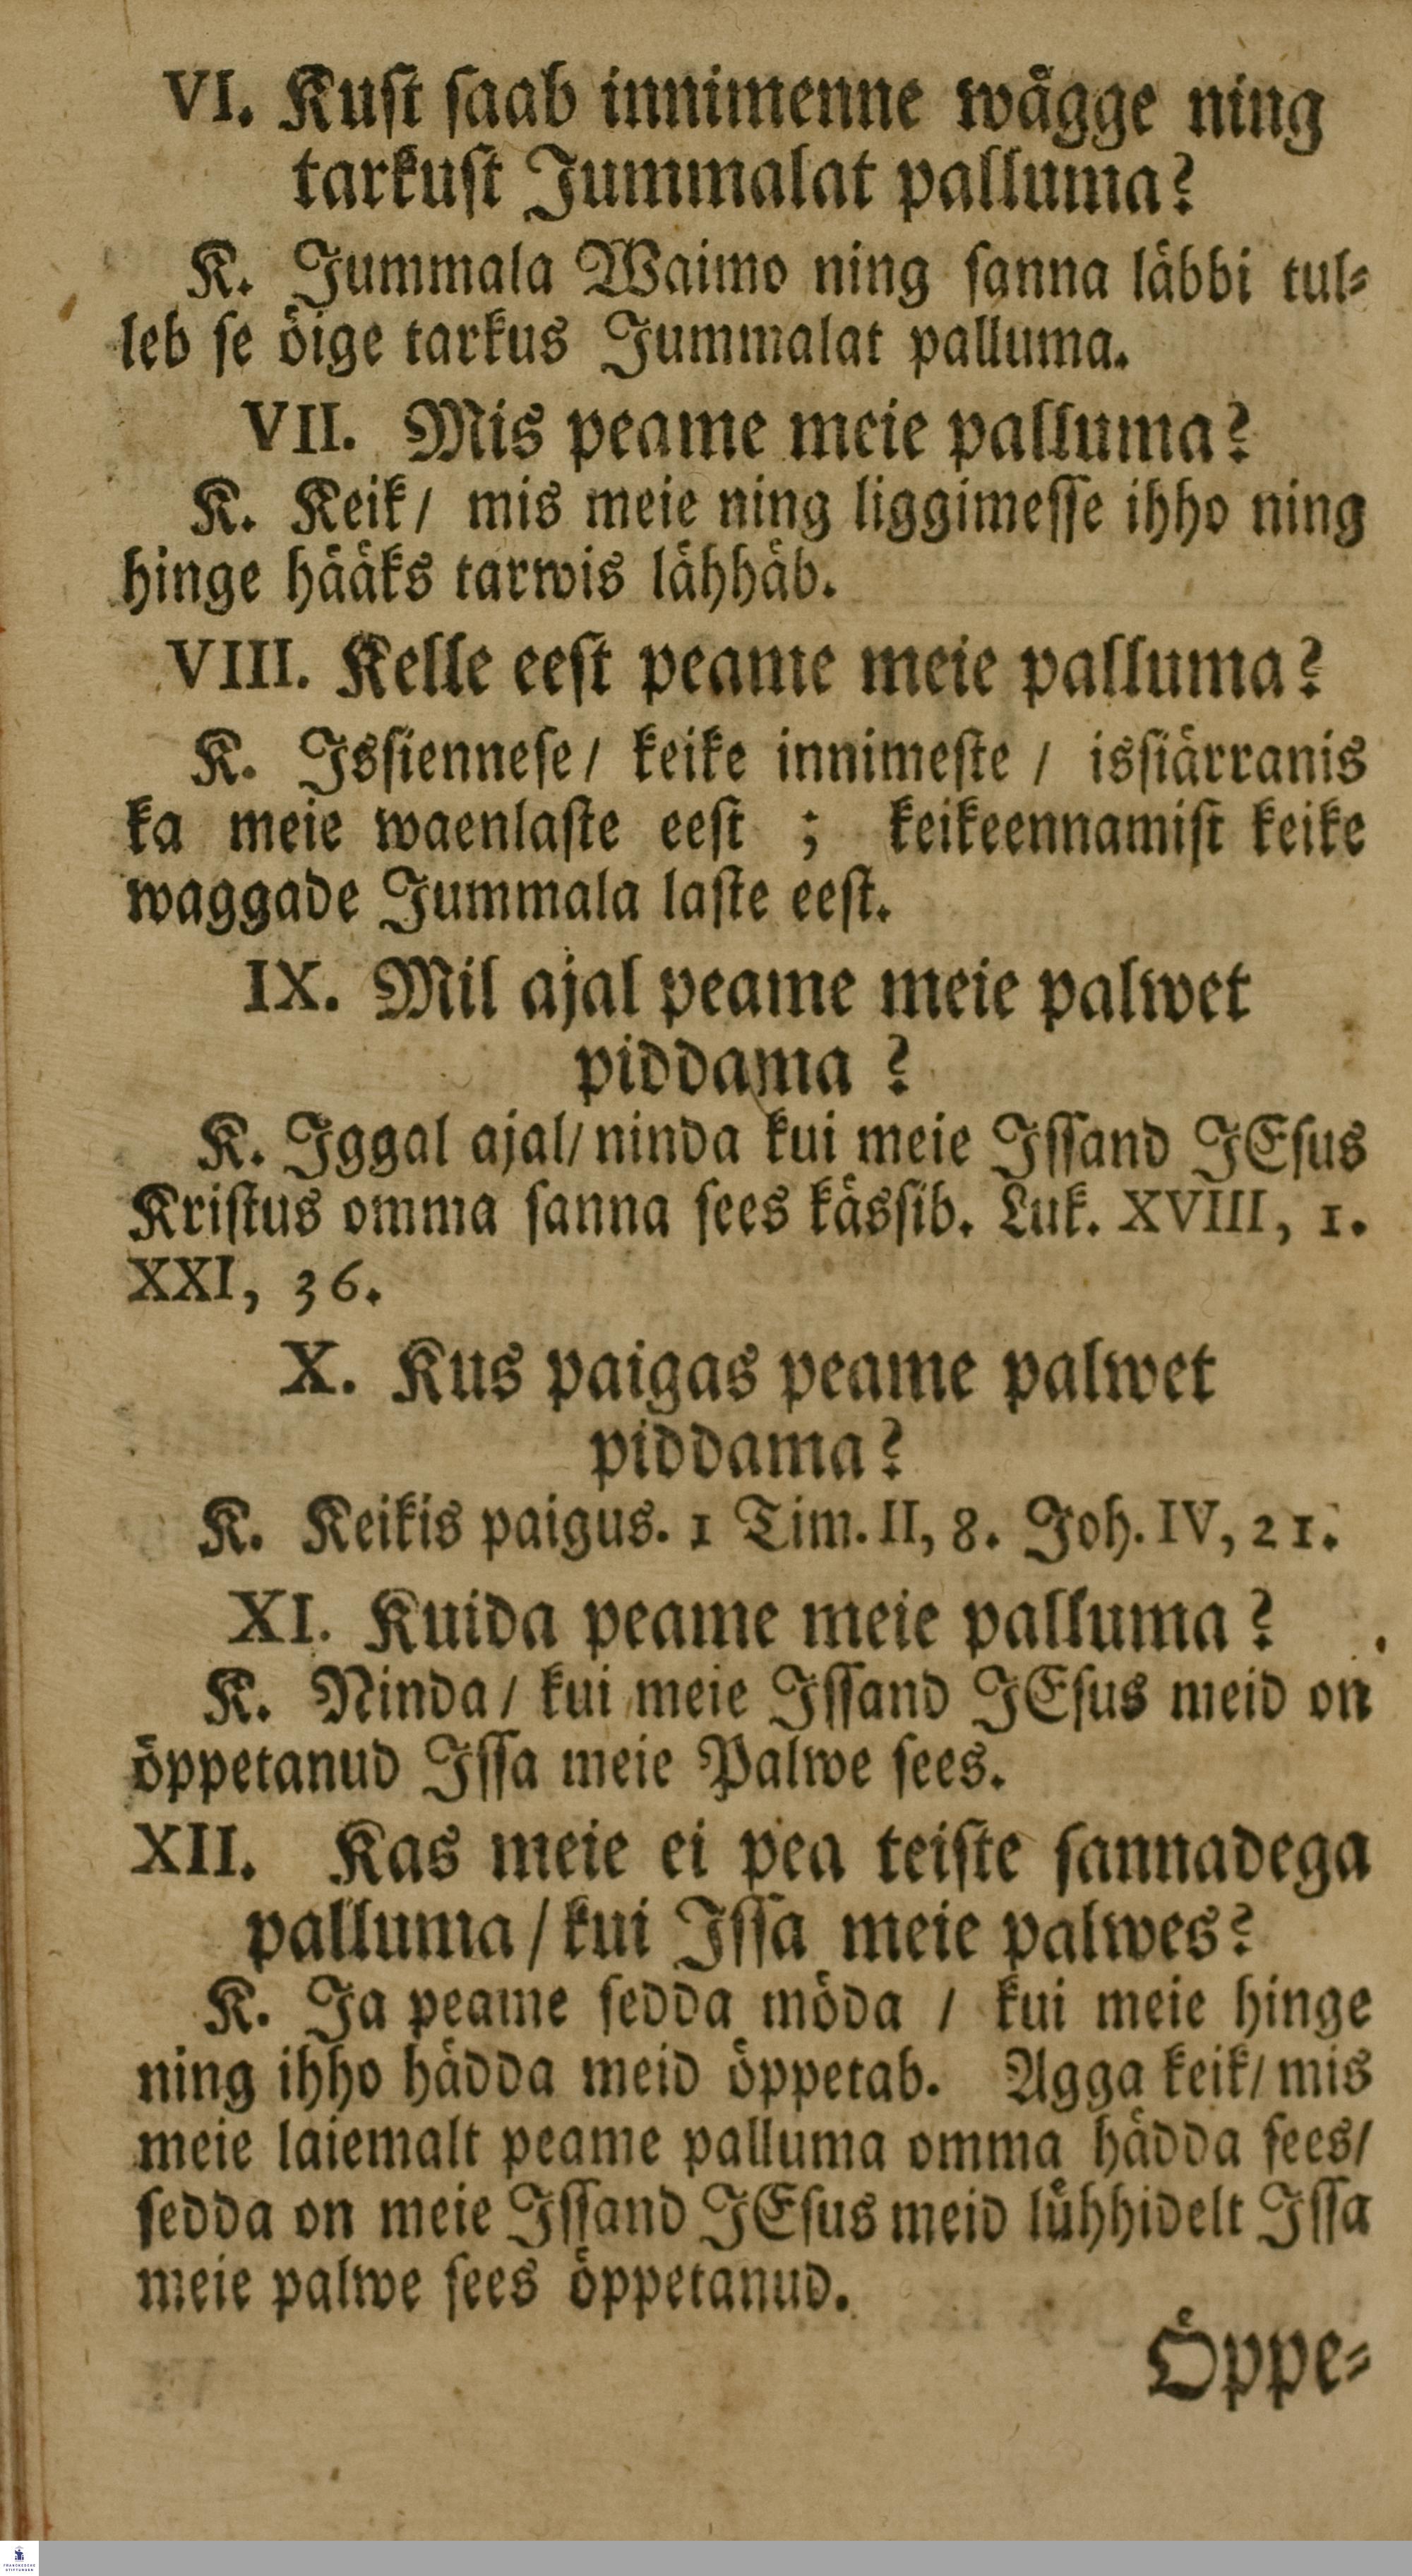 VI. Kuſt ſaab innimenne wägge ning
tarkuſt Jummalat palluma?
K. Jummala Waimo ning ſanna läbbi tul⸗
leb ſe öige tarkus Jummalat palluma.
VII. Mis peame meie palluma?
K. Keik/ mis meie ning liggimeſſe ihho ning
hinge hääks tarwis lähhäb.
VIII. Kelle eeſt peame meie palluma?
K. Isſienneſe/ keike innimeſte / isſiärranis
ka meie waenlaſte eeſt ; keikeennamiſt keike
waggade Jummala laſte eeſt.
IX. Mil ajal peame meie palwet
piddama ?
K. Iggal ajal/ ninda kui meie Iſſand JEſus
Kriſtus omma ſanna ſees käsſib. Luk. XVIII, 1.
XXI, 36.
X. Kus paigas peame palwet
piddama?
K. Keikis paigus. 1 Tim. II, 8. Joh. IV, 21.
XI. Kuida peame meie palluma ?
K. Ninda/ kui meie Iſſand JEſus meid on
öppetanud Iſſa meie Palwe ſees.
XII. Kas meie ei pea teiſte ſannadega
palluma/ kui Iſſa meie palwes?
K. Ja peame ſedda möda / kui meie hinge
ning ihho hädda meid öppetab. Agga keik/ mis
meie laiemalt peame palluma omma hädda ſees/
ſedda on meie Iſſand JEſus meid lühhidelt Iſſa
meie palwe ſees öppetanud.
Öppe⸗
FRANCKESCHE
STIFTUNGEN